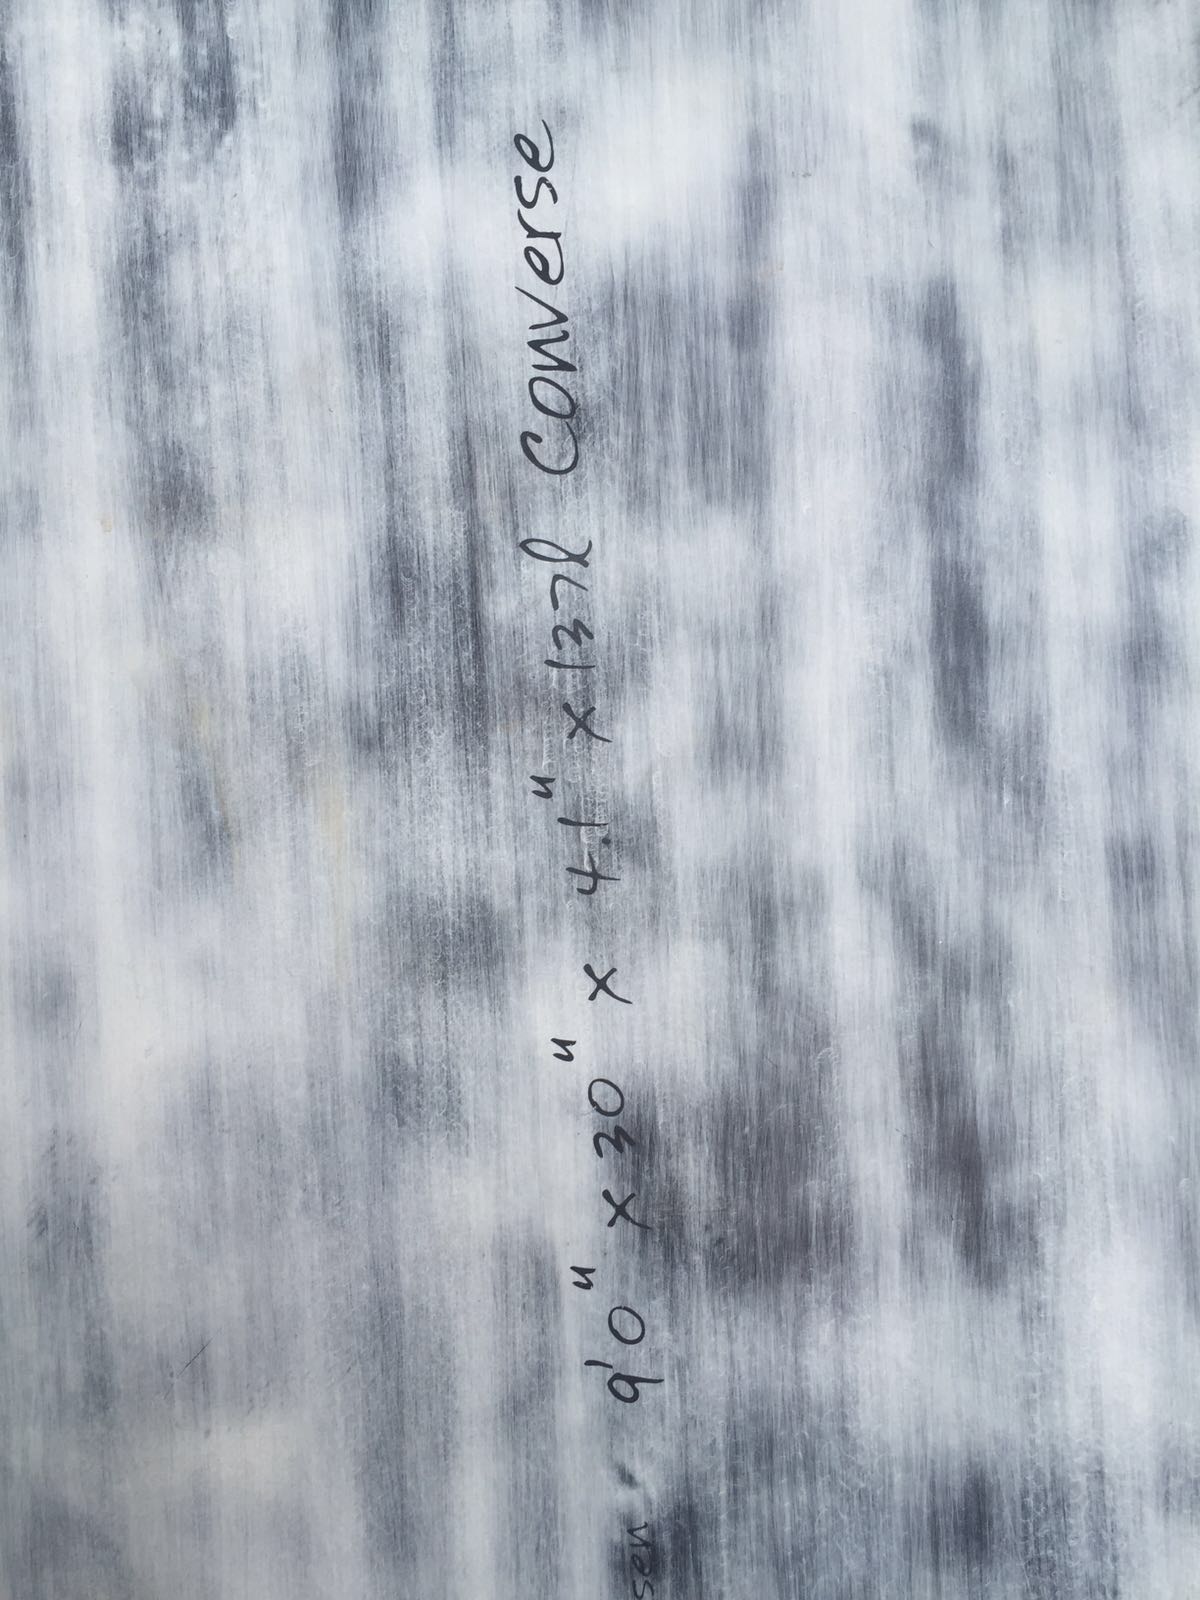 sen 9'0" x 30" x 4.1" x 137l Converse